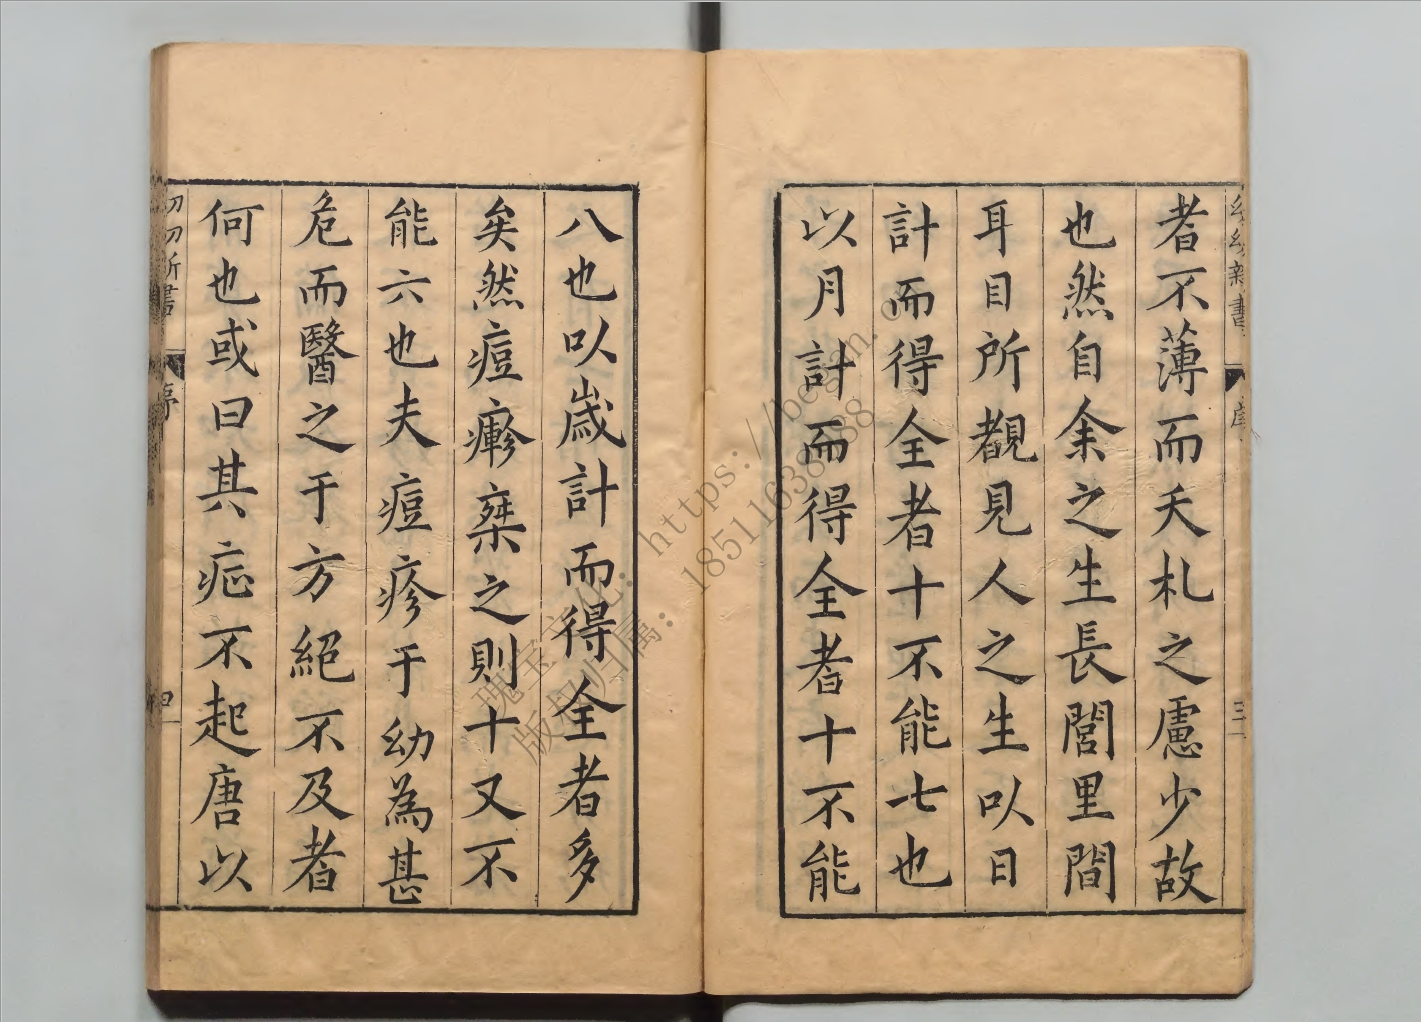 幼幼新書 序 三
者不薄而夭札之慮少故
也然自余之生長閭里間
耳目所覩見人之生以日
計而得全者十不能七也
以月計而得全者十不能
八也以歲計而得全者多
矣然痘瘮椉之則十又不
能六也夫痘疹于幼為甚
危而醫之于方絕不及者
何也或曰其症不起唐以
幼幼新書 序 四
瑰宝文化：https://
版权归属：